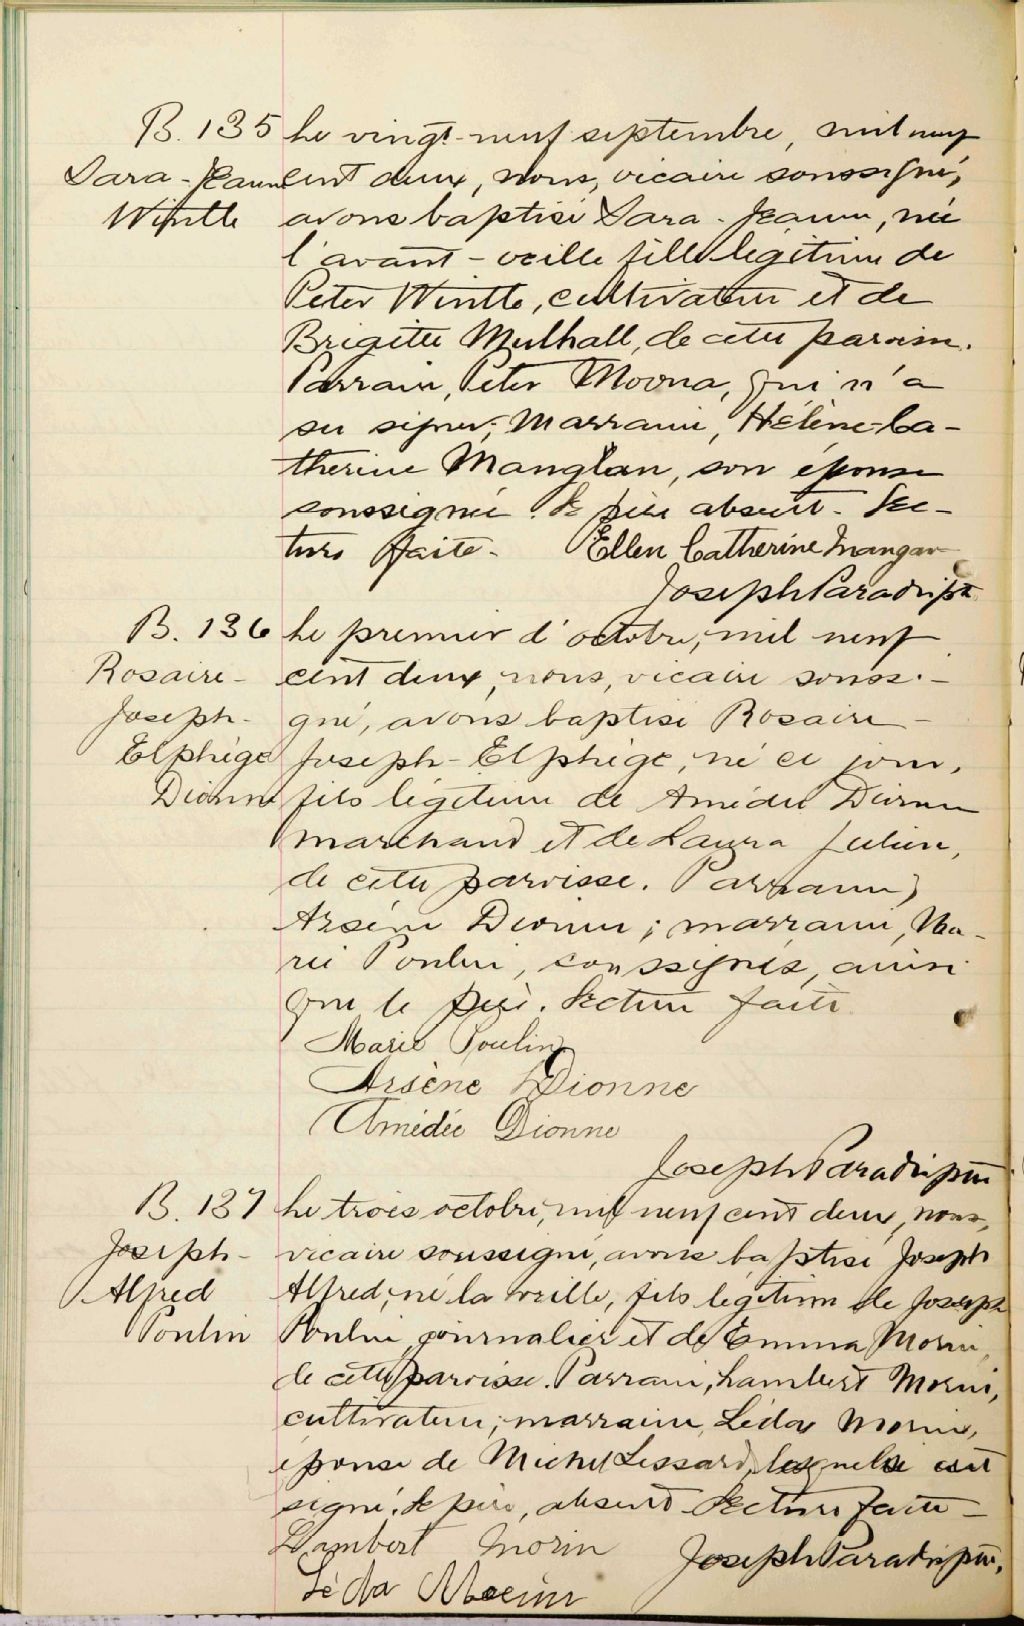 B. 135
Sara-Jeanne
Wintle
Le vingt-neuf septembre, mil neuf
cent deux, nous, vicaire soussigné,
avons baptisé Sara-Jeanne, née
l'avant-veille fille légitime de
Peter Wintle, cultivateur et de
Brigitte Mulhall, de cette paroisse.
Parrain, Peter Moona, qui n'a
su signer; Marraine, Hélène-Ca-
therine Manglan, son épouse
soussignée. Le père absent. Lec-
ture faite.
Ellen Catherine Mangan
Joseph Paradis ptre
B. 136
Rosaire-
Joseph-
Elphège
Dionne
Le premier d'octobre, mil neuf
cent deux, nous, vicaire soussi-
gné, avons baptisé Rosaire-
Joseph-Elphège, né ce jour,
fils légitime de Amédée Dionne
marchand et de Laura Julien,
de cette paroisse. Parrain,
Arsène Dionne; marraine, Ma-
rie Poulin, soussignés, ainsi
que le père. Lecture faite
Marie Poulin
Arsène Dionne
Amédée Dionne
Joseph Paradis ptre
B. 137
Joseph-
Alfred
Poulin
Le trois octobre, mil neuf cent deux, nous,
vicaire soussigné, avons baptisé Joseph
Alfred, né la veille, fils légitime de Joseph
Poulin, journalier et de Emma Morin,
de cette paroisse. Parrain, Lambert Morin,
cultivateur; marraine, Léda Morin,
épouse de Michel Lessard, lesquels ont
signé. Le père, absent. Lecture faite
Lambert Morin
Joseph Paradis ptre,
Léda Morin